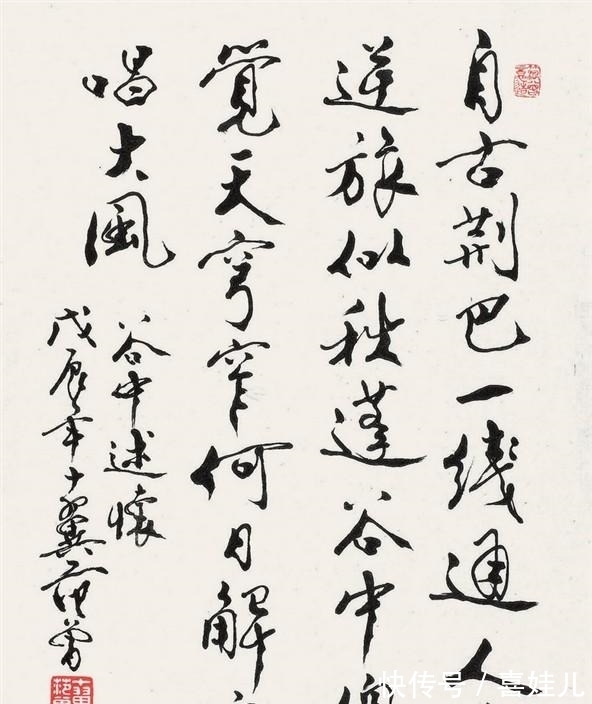 自古荊巴一綫通人
逆旅似秋蓬谷中
覺天穹窄何日解
唱大風
谷中述懷
戊辰年十翼范曾
快传号/喜娃儿